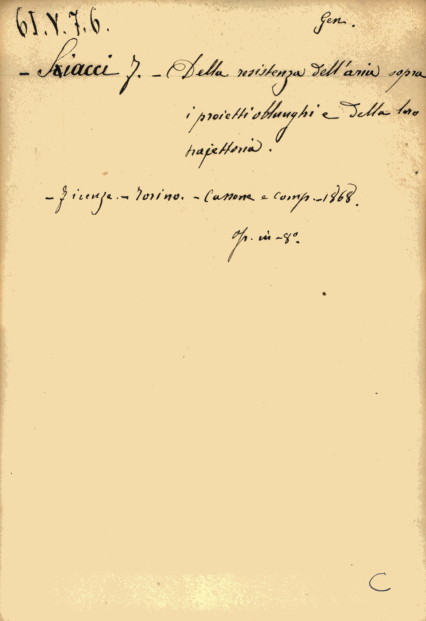 61.V.7.6.
Gen.
- Siacci F. - Della resistenza dell'aria sopra
i proietti oblunghi e della loro
trajettoria.
- Firenze - Torino. - Cassone e comp. - 1868.
Op. in-8º.
C